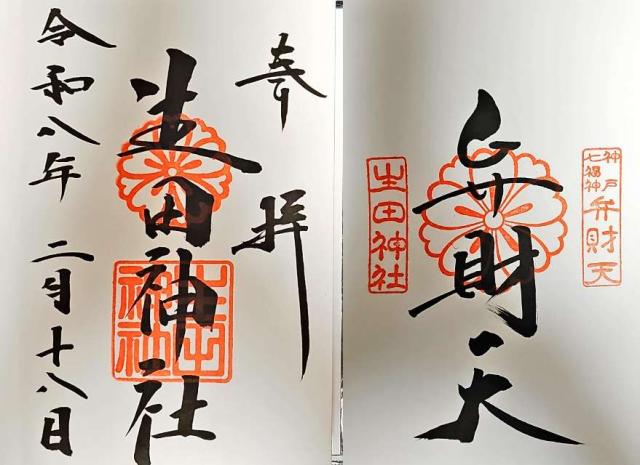 奉拝
生田神社
令和八年二月十八日
生田神社
神戸
七福神
弁財天
弁財天
生田神社